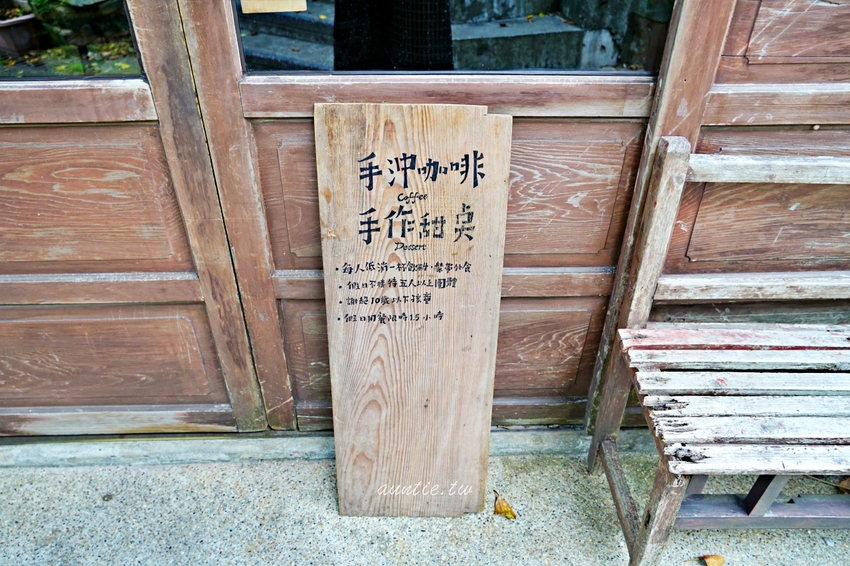 手沖咖啡
Coffee
手作甜点
Dessert
・每人低消一杯飲料,禁帶外食
・假日不接待五人以上團體
・謝絕10歲以下孩童
・假日用餐限時1.5小時
auntie.tw